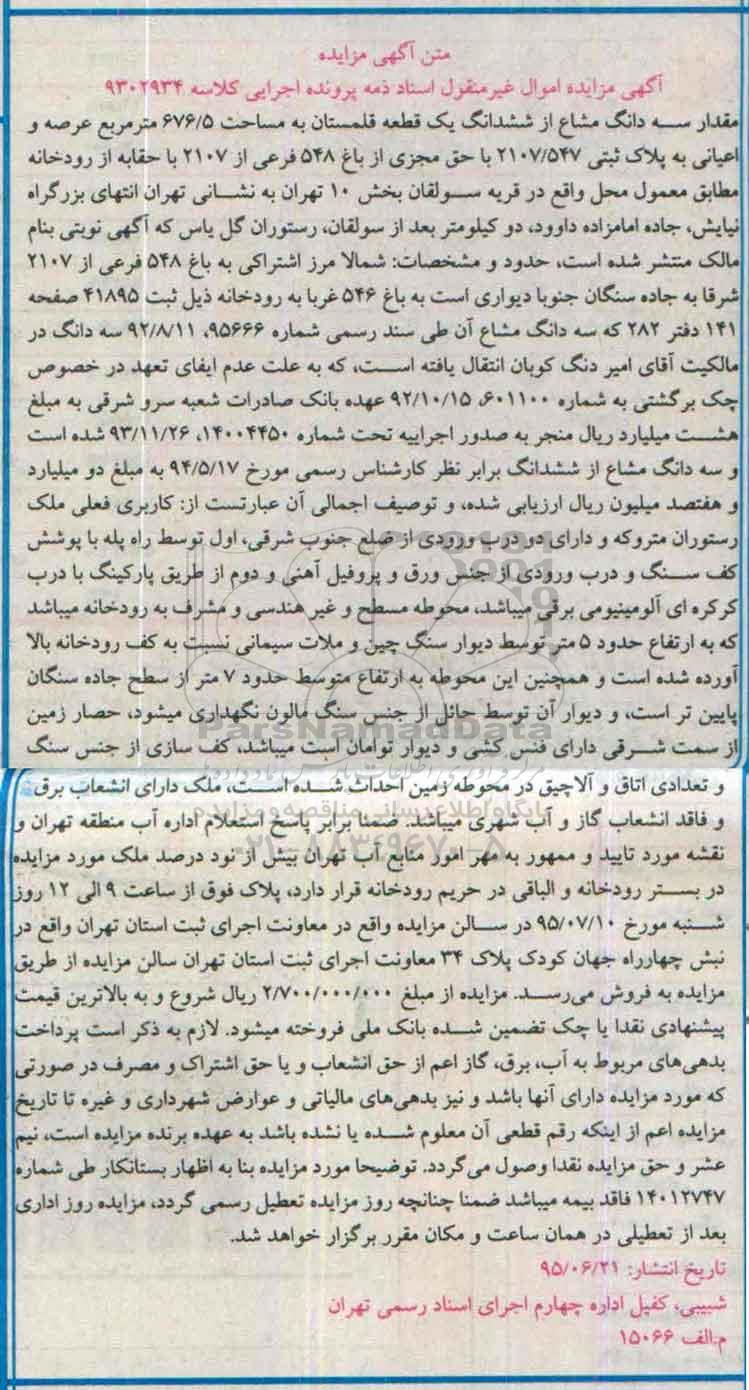 متن آگهی مزایده
آگهی مزایده اموال غیرمنقول اسناد ذمه پرونده اجرایی کلاسه ۹۳۰۲۹۳۴
مقدار سه دانگ مشاع از ششدانگ یک قطعه قلمستان به مساحت ۶۷۶/۵ مترمربع عرصه و
اعیانی به پلاک ثبتی ۲۱۰۷/۵۴۷ با حق مجزی از باغ ۵۴۸ فرعی از ۲۱۰۷ با حقابه از رودخانه
مطابق معمول محل واقع در قریه سولقان بخش ۱۰ تهران به نشانی تهران انتهای بزرگراه
نیایش، جاده امامزاده داوود، دو کیلومتر بعد از سولقان، رستوران گل یاس که آگهی نوبتی بنام
مالک منتشر شده است، حدود و مشخصات: شمالا مرز اشتراکی به باغ ۵۴۸ فرعی از ۲۱۰۷
شرقا به جاده سنگان جنوبا دیواری است به باغ ۵۴۶ غربا به رودخانه ذیل ثبت ۴۱۸۹۵ صفحه
۱۴۱ دفتر ۲۸۲ که سه دانگ مشاع آن طی سند رسمی شماره ۹۵۶۶۶، ۹۲/۸/۱۱ سه دانگ در
مالکیت آقای امیر دنگ کوبان انتقال یافته است، که به علت عدم ایفای تعهد در خصوص
چک برگشتی به شماره ۶۰۱۱۰۰، ۹۲/۱۰/۱۵ عهده بانک صادرات شعبه سرو شرقی به مبلغ
هشت میلیارد ریال منجر به صدور اجراییه تحت شماره ۱۴۰۰۴۴۵۰، ۹۳/۱۱/۲۶ شده است
و سه دانگ مشاع از ششدانگ برابر نظر کارشناس رسمی مورخ ۹۴/۵/۱۷ به مبلغ دو میلیارد
و هفتصد میلیون ریال ارزیابی شده، و توصیف اجمالی آن عبارتست از: کاربری فعلی ملک
رستوران متروکه و دارای دو درب ورودی از ضلع جنوب شرقی، اول توسط راه پله با پوشش
کف سنگ و درب ورودی از جنس ورق و پروفیل آهنی و دوم از طریق پارکینگ با درب
کرکره ای آلومینیومی برقی میباشد، محوطه مسطح و غیر هندسی و مشرف به رودخانه میباشد
که به ارتفاع حدود ۵ متر توسط دیوار سنگ چین و ملات سیمانی نسبت به کف رودخانه بالا
آورده شده است و همچنین این محوطه به ارتفاع متوسط حدود ۷ متر از سطح جاده سنگان
پایین تر است، و دیوار آن توسط حائل از جنس سنگ مالون نگهداری میشود، حصار زمین
از سمت شرقی دارای فنس کشی و دیوار توامان است میباشد، کف سازی از جنس سنگ
و تعدادی اتاق و آلاچیق در محوطه زمین احداث شده است، ملک دارای انشعاب برق
و فاقد انشعاب گاز و آب شهری میباشد. ضمنا برابر پاسخ استعلام اداره آب منطقه تهران و
نقشه مورد تایید و ممهور به مهر امور منابع آب تهران بیش از نود درصد ملک مورد مزایده
در بستر رودخانه و الباقی در حریم رودخانه قرار دارد، پلاک فوق از ساعت ۹ الی ۱۲ روز
شنبه مورخ ۹۵/۰۷/۱۰ در سالن مزایده واقع در معاونت اجرای ثبت استان تهران واقع در
نبش چهارراه جهان کودک پلاک ۳۴ معاونت اجرای ثبت استان تهران سالن مزایده از طریق
مزایده به فروش می‌رسد. مزایده از مبلغ ۲/۷۰۰/۰۰۰/۰۰۰ ریال شروع و به بالاترین قیمت
پیشنهادی نقدا یا چک تضمین شده بانک ملی فروخته میشود. لازم به ذکر است پرداخت
بدهی‌های مربوط به آب، برق، گاز اعم از حق انشعاب و یا حق اشتراک و مصرف در صورتی
که مورد مزایده دارای آنها باشد و نیز بدهی‌های مالیاتی و عوارض شهرداری و غیره تا تاریخ
مزایده اعم از اینکه رقم قطعی آن معلوم شده یا نشده باشد به عهده برنده مزایده است، نیم
عشر و حق مزایده نقدا وصول می‌گردد. توضیحا مورد مزایده بنا به اظهار بستانکار طی شماره
۱۴۰۱۲۷۴۷ فاقد بیمه میباشد ضمنا چنانچه روز مزایده تعطیل رسمی گردد، مزایده روز اداری
بعد از تعطیلی در همان ساعت و مکان مقرر برگزار خواهد شد.
تاریخ انتشار: ۹۵/۰۶/۲۱
شبیبی، کفیل اداره چهارم اجرای اسناد رسمی تهران
م.الف ۱۵۰۶۶
ParsNamadData
پایگاه اطلاع رسانی مناقصه و مزایده
۰۲۱-۸۸۳۴۹۶۷۰-۵